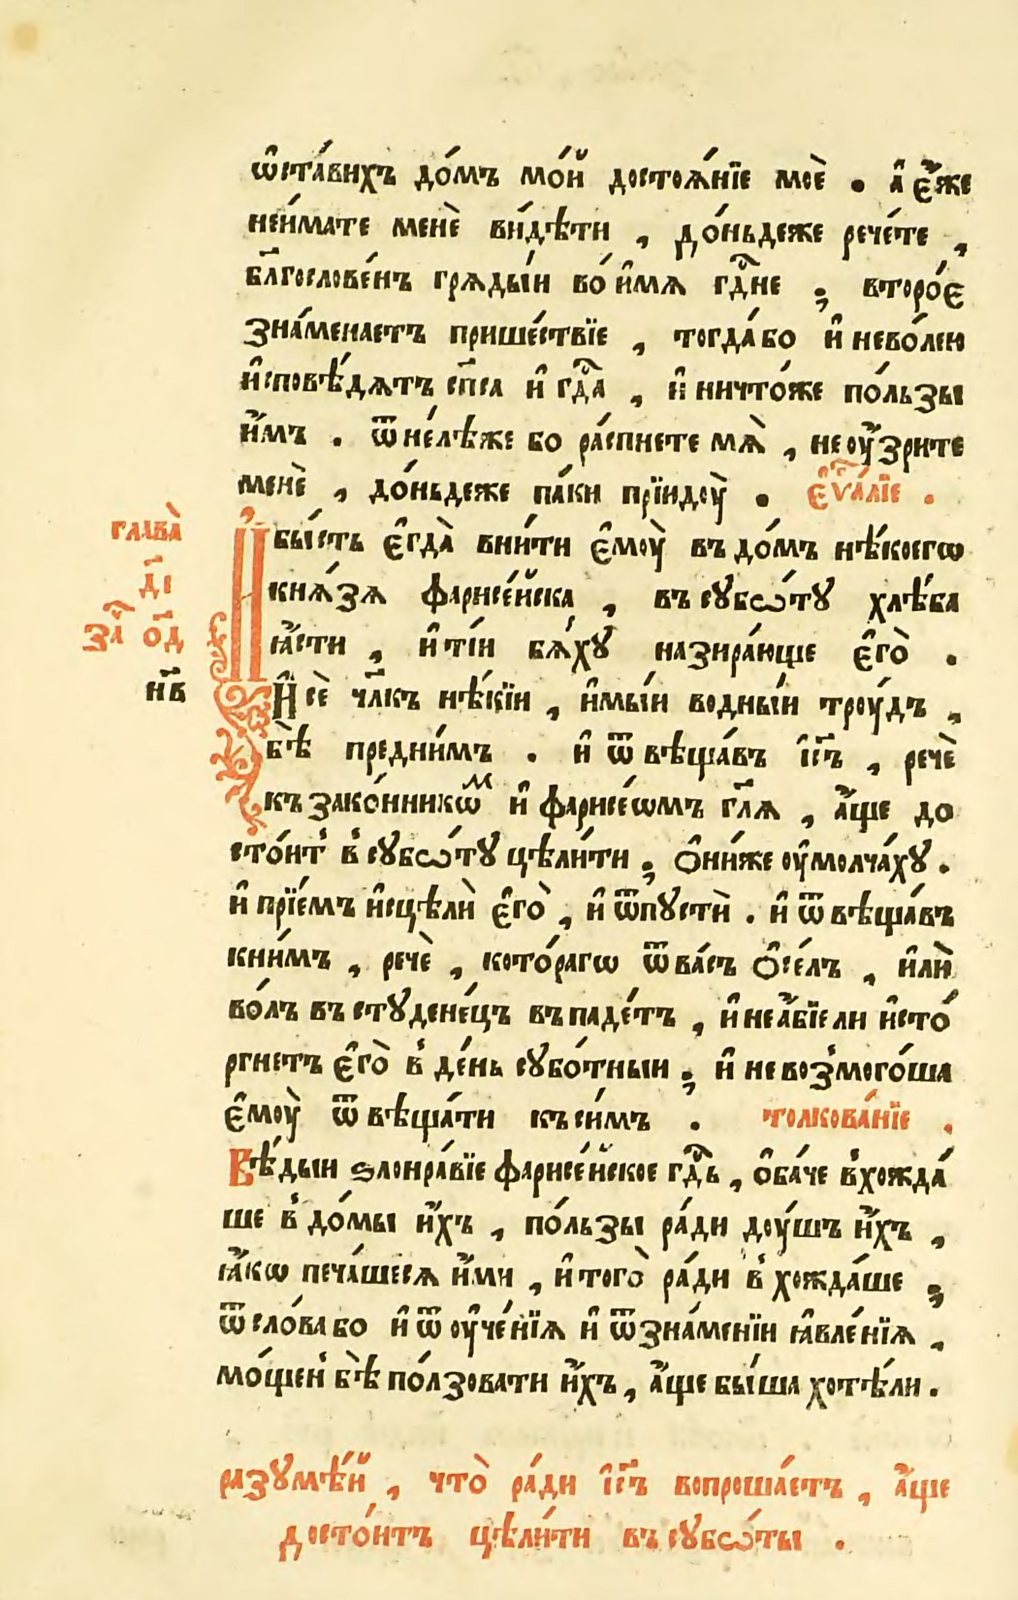 ѡ҆ста́вихъ до́мъ мо́й достоѧ́нїе моѐ . а҆ є҆́же
неи́мате менѐ ви́дѣти , до́ньдеже рече́те ,
бл҃гослове́нъ грѧды́и во и҆́мѧ гдⷭ҇не ; второ́є
зна́менаетъ прише́ствїе , тогда́ бо и҆ нево́лею
и҆сповѣ́дѧтъ сп҃са и҆ гдⷭ҇а , и҆ ничто́же по́льзы
и҆́мъ . ѿне́лѣже бо ра́спнете мѧ̀ , не оу҆́зрите
менѐ , до́ньдеже па́ки прїидоу̀ . є҆ѵⷢ҇а́лїе .
глава̀
д҃і
за⁠ⷱ҇ ѻ҃д
нв҃
И бы́сть є҆гда̀ вни́ти є҆моу̀ въ до́мъ нѣ́коегѡ
кнѧ́зѧ фарисе́йска , въ сꙋбѡ́тꙋ хлѣ́ба
ꙗ҆́сти , и҆ ті́и бѧ́хꙋ назира́юще є҆го̀ .
И҆ сѐ чл҃къ нѣ́кїи , и҆мы́и водны́и троу́дъ ,
бѣ̀ предни́мъ . и҆ ѿвѣща́въ і҆с҃ъ , речѐ
къ зако́нникѡⷨ и҆ фарисе́ѡмъ гл҃ѧ , а҆́ще до
сто́ит в сꙋбѡ́тꙋ цѣли́ти ; ѻ҆ни́же оу҆молча́хꙋ .
и҆ прїе́мъ и҆сцѣлѝ є҆го̀ , и҆ ѿпꙋстѝ . и҆ ѿвѣща́въ
кни́мъ , речѐ , кото́рагѡ ѿ ва́съ ѻ҆се́лъ , и҆лѝ
во́лъ въ стꙋдене́цъ въпаде́тъ , и҆ не а҆́бїе ли и҆сто́
ргнетъ є҆го̀ в де́нь сꙋбо́тныи ; и҆ не возмого́ша
є҆моу̀ ѿвѣща́ти къ си́мъ . толкова́нїе .
Вѣ́дыи ѕлонра́вїе фарисе́йское гдⷭ҇ь , ѻ҆ба́че вхожда́
ше в до́мы и҆́хъ , по́льзы ра́ди доу́шъ и҆́хъ ,
ꙗ҆́кѡ печа́шесѧ и҆́ми , и҆ того̀ ра́ди в хожда́ше ;
ѿ сло́ва бо и҆ ѿ оу҆че́нїѧ и҆ ѿ зна́менїи ꙗ҆вле́нїѧ ,
мо́щен бѣ̀ по́лзовати и҆́хъ , а҆́ще бы́ша хотѣ́ли .
разꙋмѣ́й , что̀ ра́ди і҆с҃ъ вопроша́етъ , а҆́ще
досто́итъ цѣли́ти въ сꙋбѡ́ты .